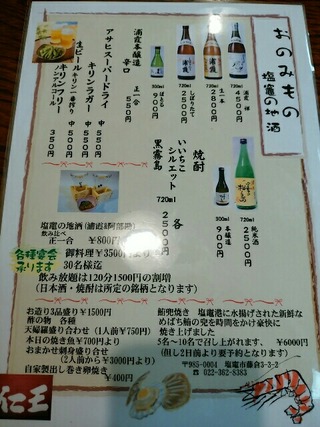 おのみもの
塩竈の地酒
浦霞 禅
720ml
4500円
生一本
720ml
2800円
しぼりたて
720ml
2500円
ばとる
300ml
900円
浦霞本醸造
辛口
正一合
550円
アサヒスーパードライ
中 550円
キリンラガー
中 550円
生ビール キリン一番搾り
550円
キリンフリー
ノンアルコール
350円
焼酎
いいちこ
シルエット
黒霧島
720ml
各
2500円
純米酒
720ml
2500円
本醸造
300ml
900円
塩竈の地酒(浦霞&阿部勘)
飲み比べ
正一合 ¥800円
各種宴会
承ります
御料理¥3500円
30名様迄
飲み放題は120分1500円の割増
(日本酒・焼酎は所定の銘柄となります)
お造り3品盛り¥1500円
酢の物 各種
天婦羅盛り合わせ(1人前¥750円)
本日の焼き魚¥700円より
おまかせ刺身盛り合せ
(2人前から¥3000円より)
自家製出し巻き卵焼き
¥400円
鮪兜焼き 塩竈港に水揚げされた新鮮な
めばち鮪の兜を時間をかけ豪快に
焼き上げました
5名~10名で召し上がれます、 ¥6000円
(但し2日前より要予約となります)
〒985-0004 塩竈市藤倉3-3-2
☎ 022-362-8383
仁王